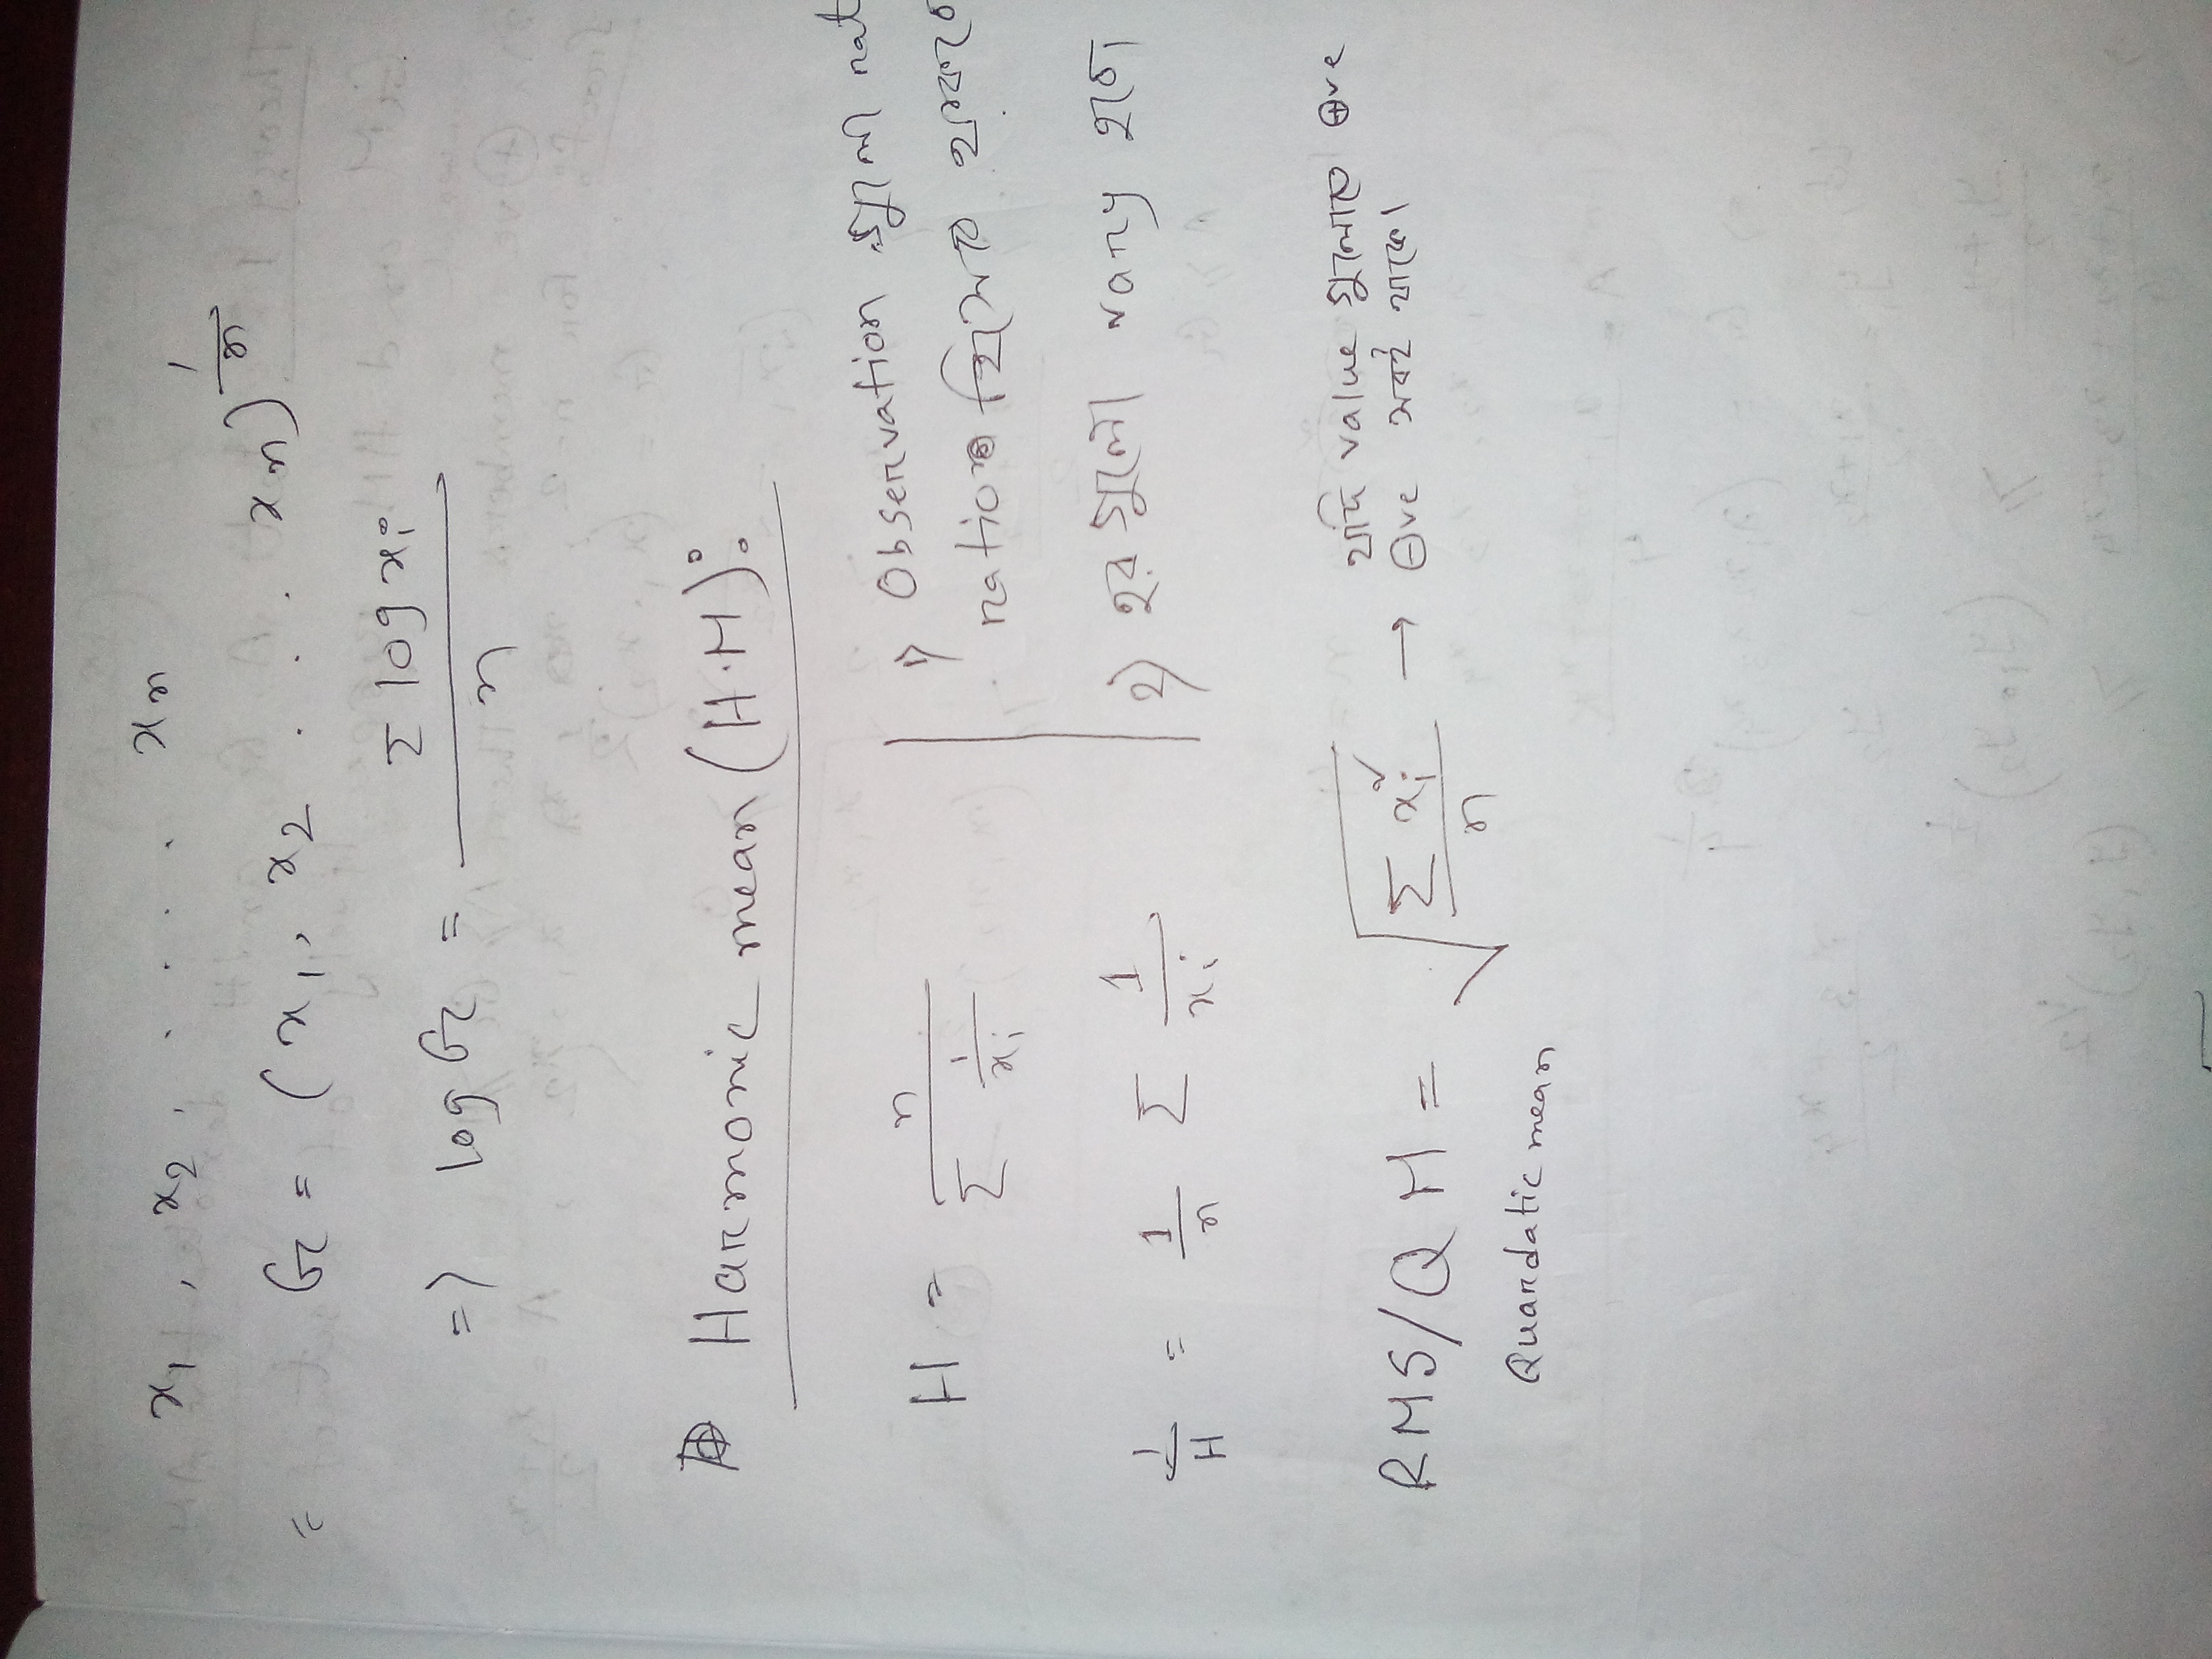 x₁, x₂, . . . . xₙ
= G = (x₁, x₂ . . . . xₙ)^(1/n)
=> log G = Σ log xᵢ / n
Harmonic mean (H.M):
H = n / Σ 1/xᵢ
1) observation গুলা
ratio হিসেবে থাকবে
1/H = 1/n Σ 1/xᵢ
২) হর গুলো vary হবে।
RMS/QM = √(Σ xᵢ² / n) → যদি value গুলোতে ⊕ve
⊖ve সবই থাকে।
Quardatic mean